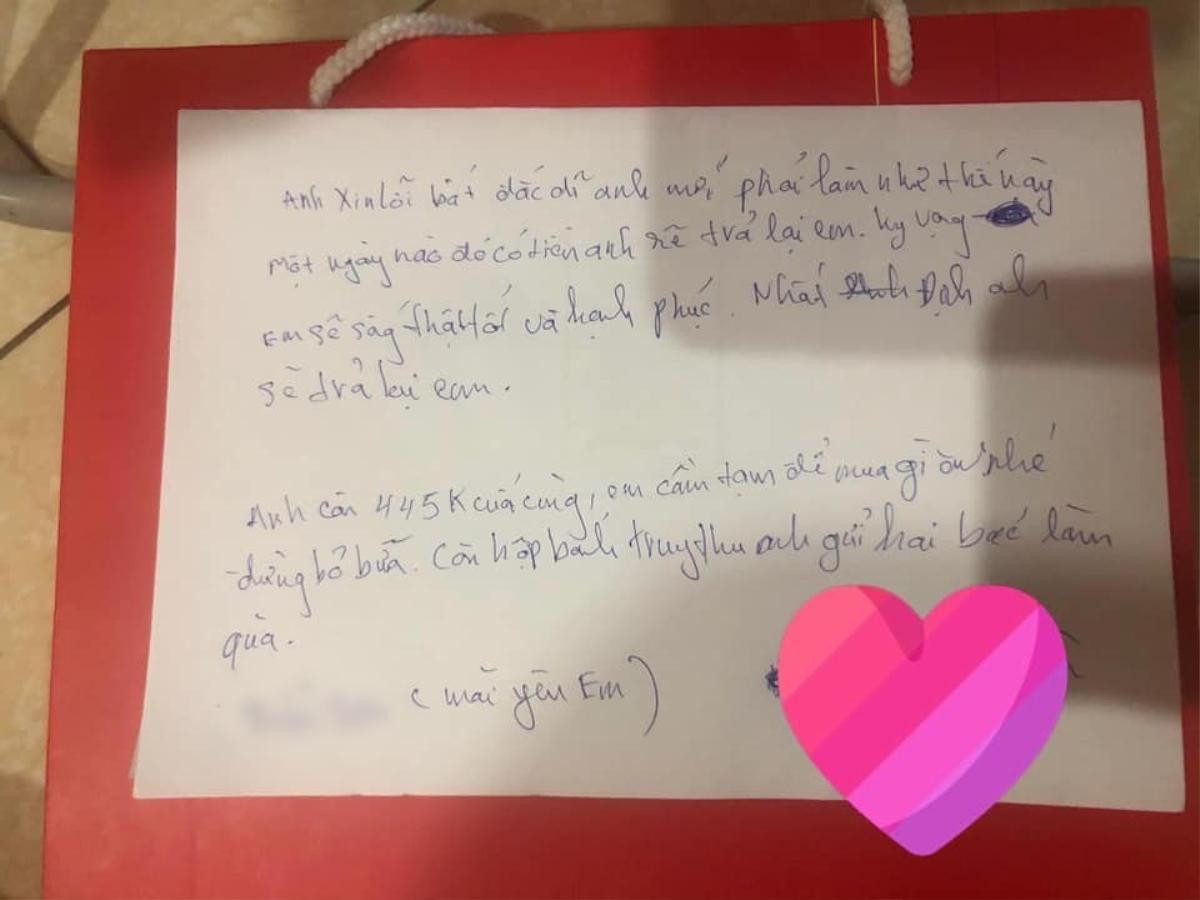 Anh Xin lỗi bất đắc dĩ anh mới phải làm như thế này
Một ngày nào đó có tiền anh sẽ trả lại em. Kỳ vọng
Em sẽ sống thật tốt và hạnh phúc. Nhất Định anh
sẽ trả lại em.
Anh còn 445K cuối cùng, em cầm tạm để mua gì ăn nhé
đừng bỏ bữa. Còn hộp bánh trung thu anh gửi hai bác làm
quà.
(mãi yêu Em)